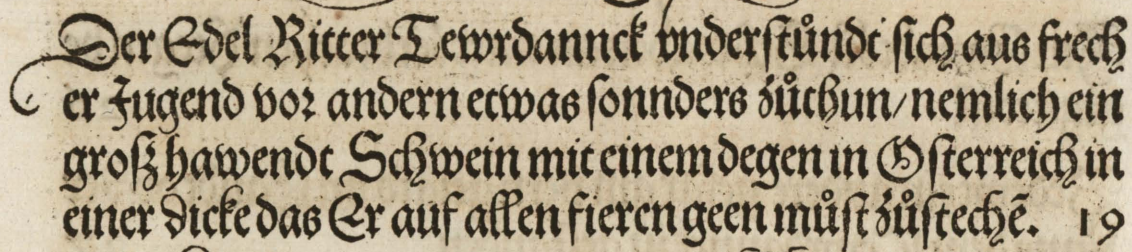 Der Edel Ritter Tewrdannck vnderſtuͤndt ſich aus frech
er Jugend voꝛ andern etwas ſonnders zuͦthun/ nemlich ein
groſz hawendt Schwein mit einem degen in Oſterreich in
einer dicke das Er auf allen fieren geen muͦſt zuͦſtechẽ. 19